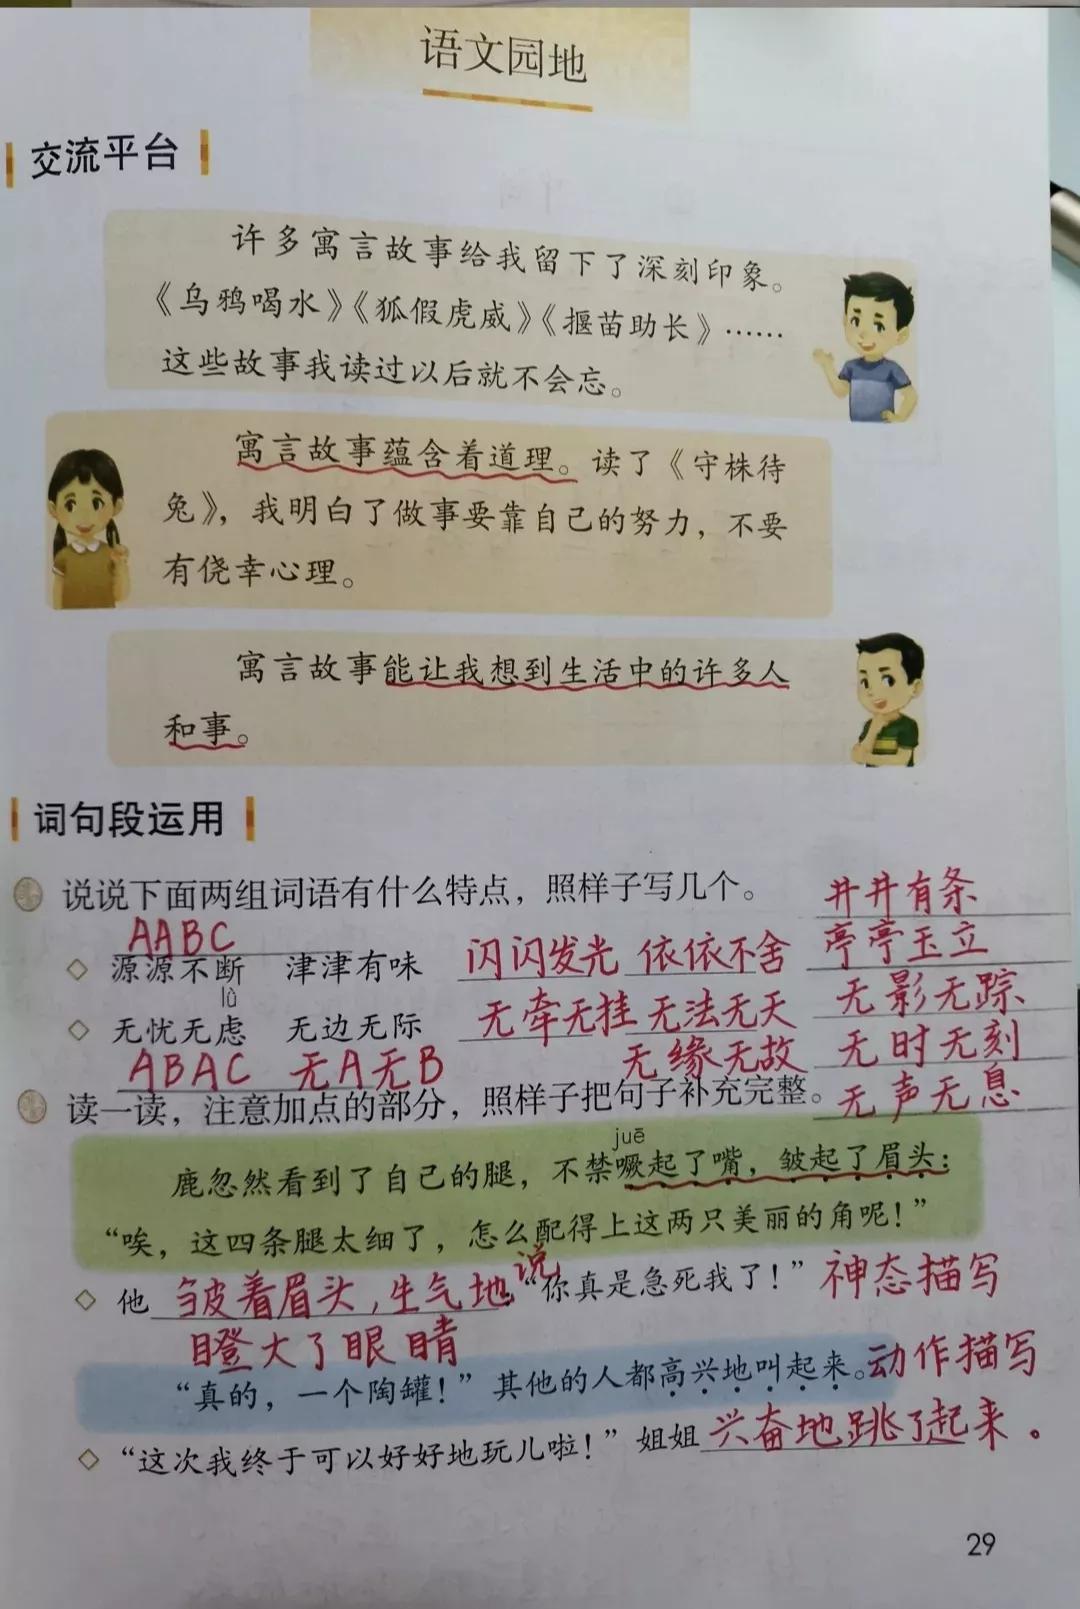 语文园地
交流平台
许多寓言故事给我留下了深刻印象。
《乌鸦喝水》《狐假虎威》《揠苗助长》……
这些故事我读过以后就不会忘。
寓言故事蕴含着道理。读了《守株待
兔》，我明白了做事要靠自己的努力，不要
有侥幸心理。
寓言故事能让我想到生活中的许多人
和事。
词句段运用
说说下面两组词语有什么特点，照样子写几个。
井井有条
AABC
源源不断 津津有味 闪闪发光 依依不舍 亭亭玉立
lǜ
无忧无虑 无边无际 无牵无挂 无法无天 无影无踪
ABAC 无A无B 无缘无故 无时无刻
读一读，注意加点的部分，照样子把句子补充完整。 无声无息
juē
鹿忽然看到了自己的腿，不禁噘起了嘴，皱起了眉头：
“唉，这四条腿太细了，怎么配得上这两只美丽的角呢！”
他 皱着眉头，生气地说：“你真是急死我了！” 神态描写
瞪大了眼睛
“真的，一个陶罐！”其他的人都高兴地叫起来。动作描写
“这次我终于可以好好地玩儿啦！”姐姐 兴奋地跳了起来。
29